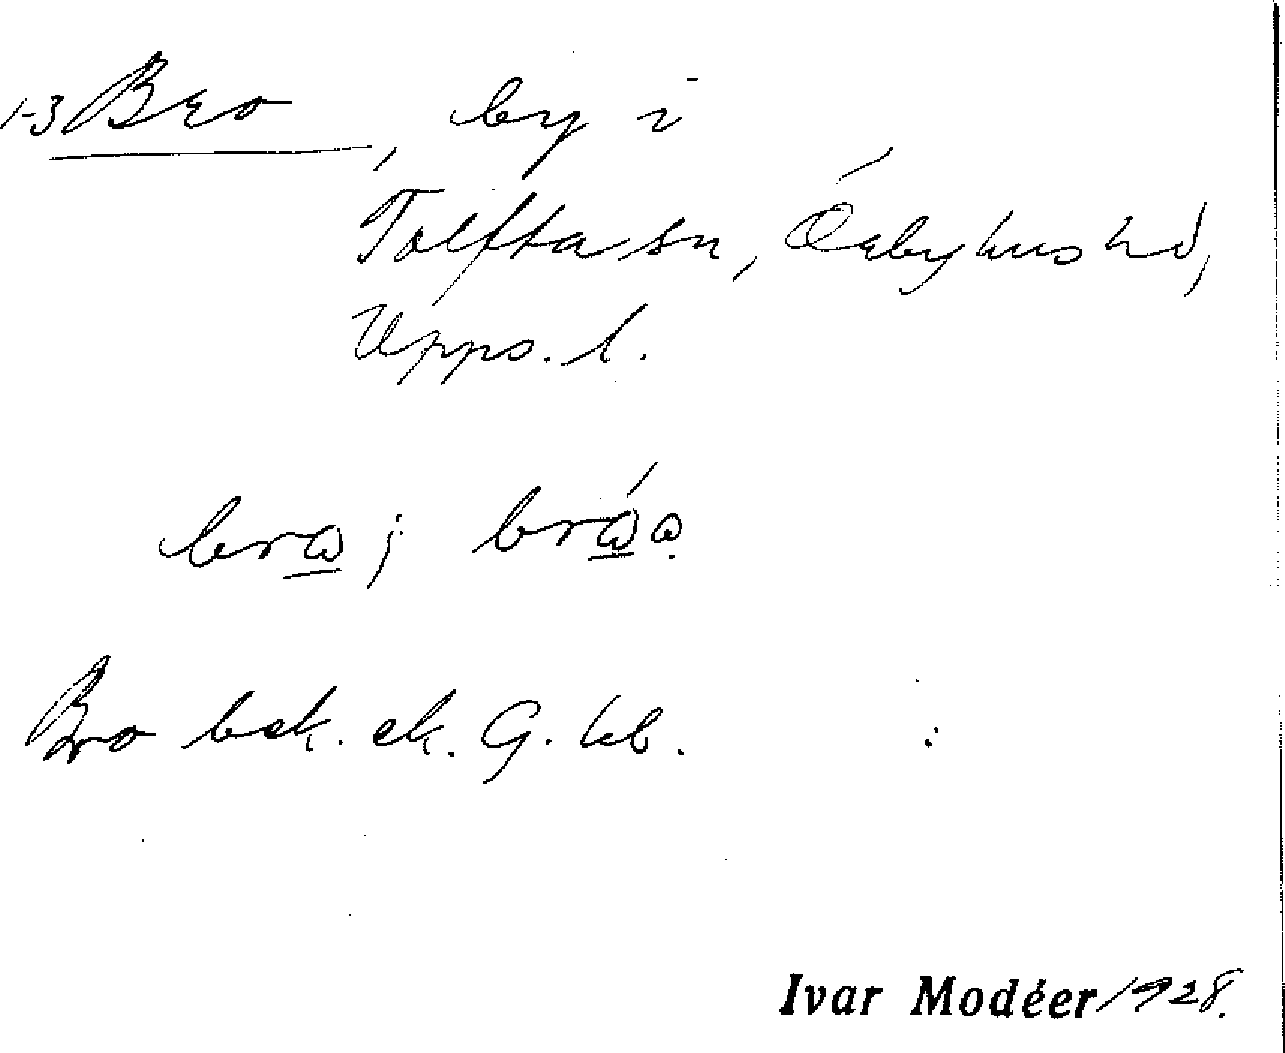 1-3 Bro, by i
Tolfta sn, Örbyhus hd,
Upps. l.
brω; brώω.
Bro bek. ek. G. kb.
Ivar Modéer 1928.